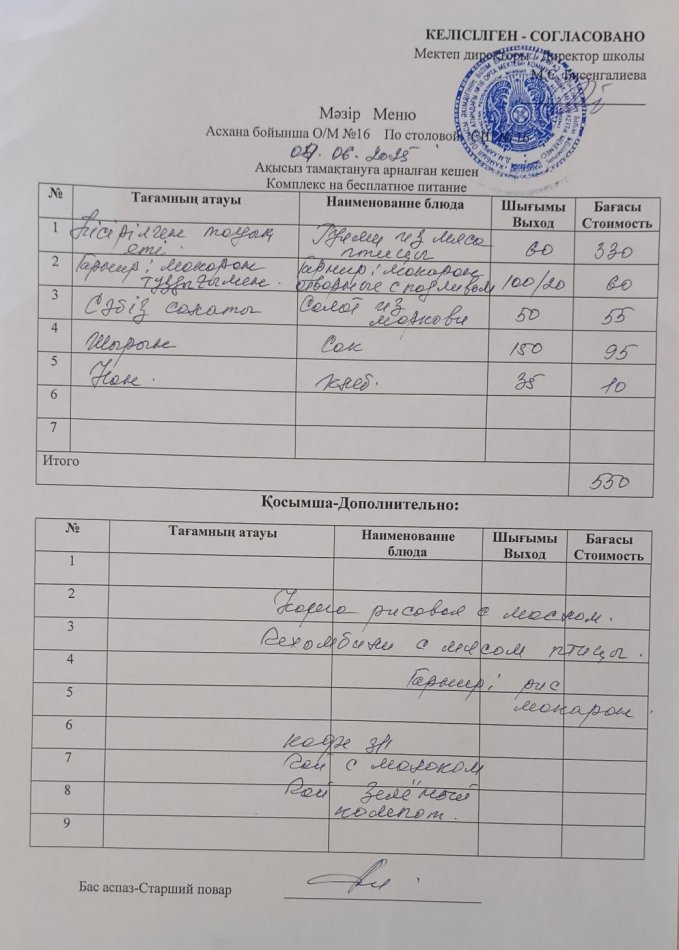 КЕЛІСІЛГЕН - СОГЛАСОВАНО
Мектеп директоры / Директор школы
М.С. Бисенгалиева
Мәзір Меню
Асхана бойынша О/М №16 По столовой СШ № 16
06.2025
Ақысыз тамақтануға арналған кешен
Комплекс на бесплатное питание
№ Тағамның атауы Наименование блюда Шығымы Выход Бағасы Стоимость
1 Пісірілген тауық еті. Гуляш из мяса птицы 60 330
2 Гарнир: макарон тұздығымен. Гарнир: макарон отварные с подливом 100/20 60
3 Сәбіз салаты Салат из моркови 50 55
4 Шырын Сок 150 95
5 Нан. хлеб. 35 10
6
7
Итого 550
Қосымша-Дополнительно:
№ Тағамның атауы Наименование блюда Шығымы Выход Бағасы Стоимость
1
2 рисовая с маслом.
3 с мясом птицы.
4 Гарнир: рис
5 макарон.
6 кофе 3в1
7 Чай с молоком
8 Чай зелёный
компот.
9
Бас аспаз-Старший повар